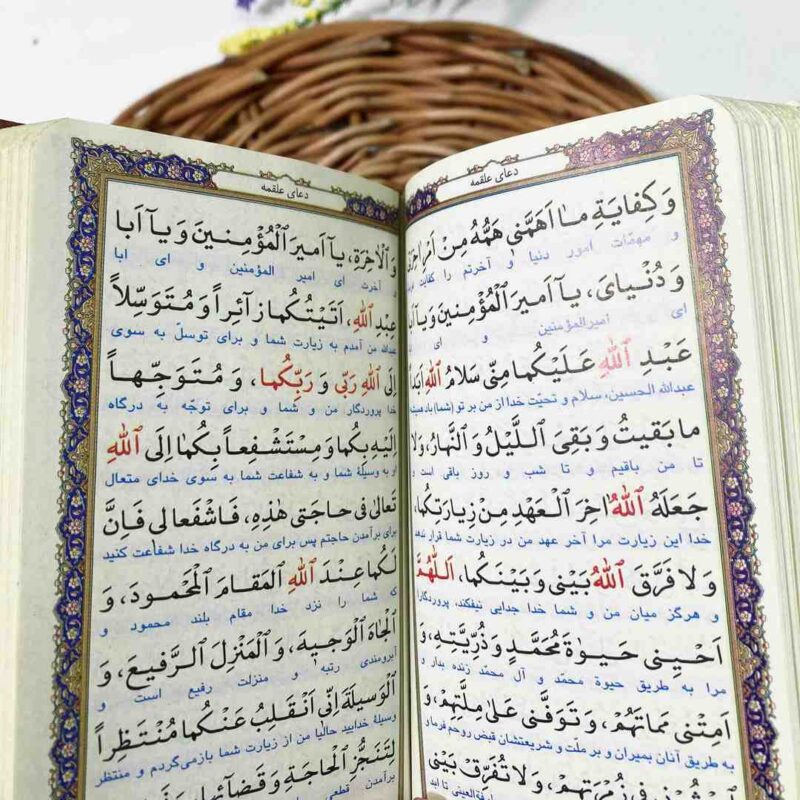 دعای علقمه
وَ كِفايَةِ ما اَهَمَّنى هَمُّهُ مِنْ اَمْرِ
و مهمّات امور دنیا و آخرتم را کفایت
وَ دُنْيایَ، يآ اَميرَ الْمُؤْمِنينَ وَ يآ اَبا
ای امیرالمؤمنین و ای
عَبْدِ اللّٰهِ عَلَيْكُما مِنّى سَلامُ اللّٰهِ اَبَداً
عبدالله الحسین، سلام و تحیّت خدا از من بر تو (شما) باد
ما بَقيتُ وَ بَقِىَ اللَّيْلُ وَ النَّهارُ، وَ لا
تا من باقیم و تا شب و روز باقی است
جَعَلَهُ اللّٰهُ اخِرَ الْعَهْدِ مِنْ زِيارَتِكُما،
خدا این زیارت مرا آخر عهد من در زیارت شما قرار ندهد
وَ لا فَرَّقَ اللّٰهُ بَيْنى وَ بَيْنَكُما، اَللّٰهُمَّ
و هرگز میان من و شما خدا جدایی نیفکند، پروردگارا
اَحْيِنى حَيٰوةَ مُحَمَّدٍ وَ ذُرِّيَّتِهِ، وَ
مرا به طریق حیوة محمّد و آل محمّد زنده بدار و
اَمِتْنى مَماتَهُمْ، وَ تَوَفَّنى عَلىٰ مِلَّتِهِمْ، وَ
به طریق آنان بمیران و بر ملّت و شریعتشان قبض روحم فرما و
احْشُرْنى فى زُمْرَتِهِمْ، وَ لا تُفَرِّقْ بَيْنى
دعای علقمه
وَ الْاخِرَةِ، يآ اَميرَ الْمُؤْمِنينَ وَ يآ اَبا
و آخرت ای امیر المؤمنین و ای ابا
عَبْدِ اللّٰهِ، اَتَيْتُكُما زآئِراً وَ مُتَوَسِّلاً
عبدالله من آمدم به زیارت شما و برای توسلّ به سوی
اِلَى اللّٰهِ رَبّى وَ رَبِّكُما، وَ مُتَوَجِّهاً
خدا پروردگار من و شما و برای توجّه به درگاه
اِلَيْهِ بِكُما وَ مُسْتَشْفِعاً بِكُما اِلَى اللّٰهِ
او به وسیلهٔ شما و به شفاعت شما به سوی خدای متعال
تَعالىٰ فى حاجَتى هٰذِهِ، فَاشْفَعا لى فَاِنَّ
برای برآمدن حاجتم پس برای من به درگاه خدا شفاعت کنید
لَكُما عِنْدَ اللّٰهِ الْمَقامَ الْمَحْمُودَ، وَ
که شما را نزد خدا مقام بلند محمود و
الْجاهَ الْوَجيهَ، وَ الْمَنْزِلَ الرَّفيعَ، وَ
آبرومندی رتبه و منزلت رفیع است و
الْوَسيلَةَ اِنّى اَنْقَلِبُ عَنْكُما مُنْتَظِراً
وسیلهٔ خدایید حالیا من از زیارت شما بازمی‌گردم و منتظر
لِتَنَجُّزِ الْحاجَةِ وَ قَضآئِها
برآمدن قطعی